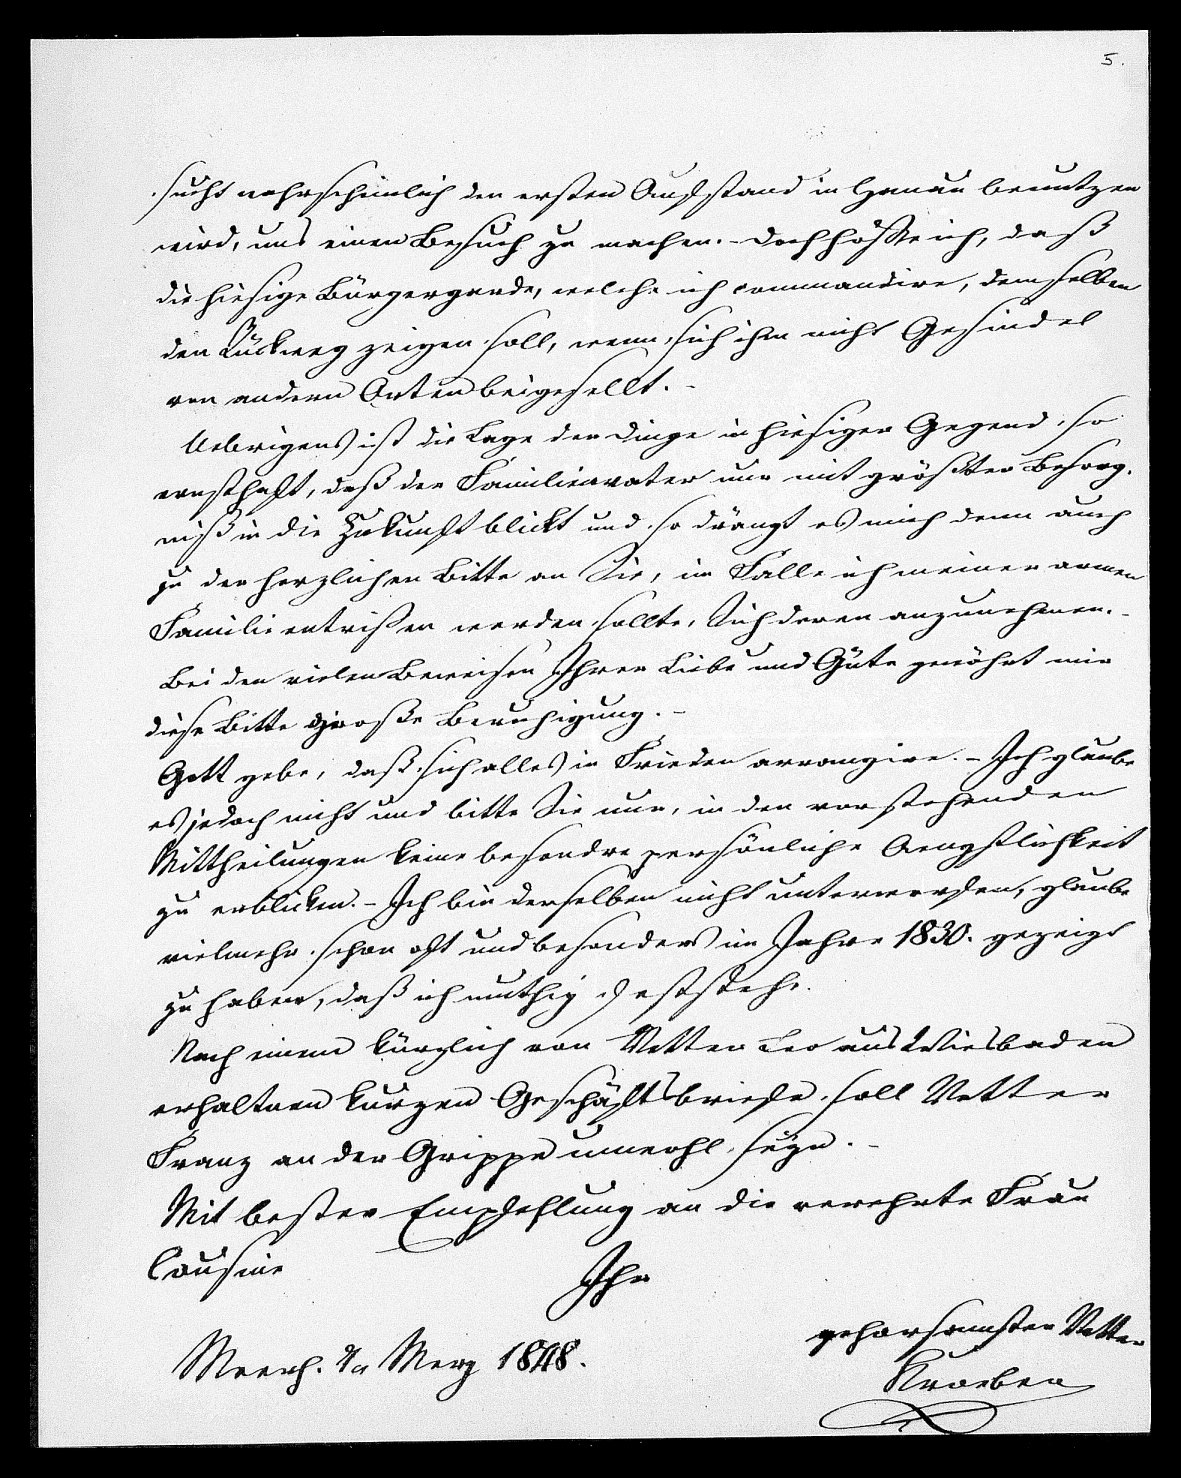 5.
sucht wahrscheinlich den ersten Aufstand in Hanau benutzen
wird, uns einen Besuch zu machen. - Doch hoffe ich, daß
die hiesige Bürgergarde, welche ich commandire, demselben
den Rückweg zeigen soll, wenn sich ihm nicht Gesindel
von andern Orten beigesellt. -
Uebrigens ist die Lage der Dinge in hiesiger Gegend so
ernsthaft, daß der Familienvater nur mit größter Besorg-
niß in die Zukunft blickt und so drängt es mich denn auch
zu der herzlichen Bitte an Sie, im Falle ich meiner armen
Familie entrißen werden sollte, Sich deren anzunehmen. -
Bei den vielen Beweisen Ihrer Liebe und Güte gewährt mir
diese Bitte große Beruhigung. -
Gott gebe, daß sich alles in Frieden arrangire. - Ich glaube
es jedoch nicht und bitte Sie nur, in den vorstehenden
Mittheilungen keine besondre persönliche Aengstlichkeit
zu erblicken. - Ich bin derselben nicht unterworfen, glaube
vielmehr schon oft und besonders im Jahre 1830. gezeigt
zu haben, daß ich muthig feststehe.
Nach einem kürzlich von Vetter Leo aus Wiesbaden
erhaltnen kurzen Geschäftsbriefe soll Vetter
Franz an der Grippe unwohl seyn. -
Mit bester Empfehlung an die verehrte Frau
Cousine
Ihr
gehorsamster Vetter
Meerh. Merz 1848.
Kroeber